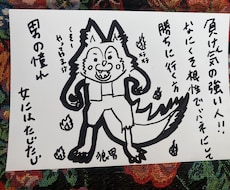 負け気の強い人!!
なにくそ根性でバネにして
勝ちに行く方
狼男
男の憧れ
女にはたじたじ